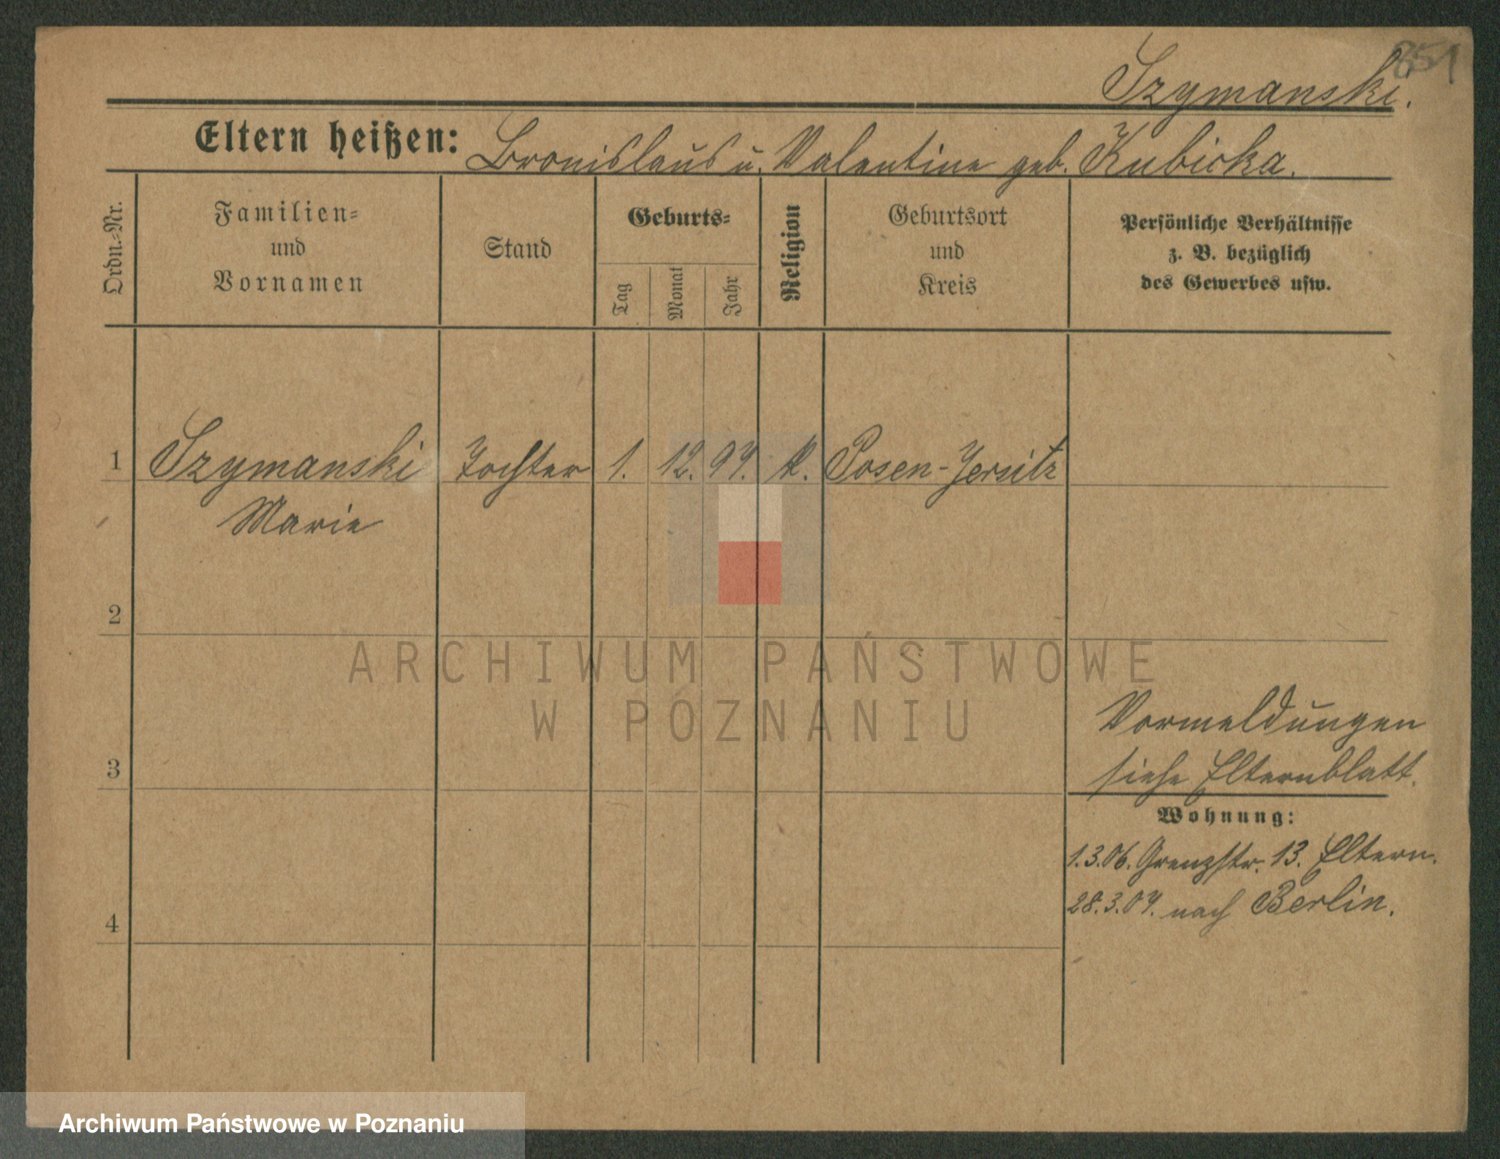 851
Szymanski.
Eltern heißen: Bronislaus u. Valentine geb. Kubicka.
Ordn.-Nr.
Familien-
und
Vornamen
Stand
Geburts-
Tag
Monat
Jahr
Religion
Geburtsort
und
Kreis
Persönliche Verhältnisse
z. B. bezüglich
des Gewerbes usw.
1 Szymanski Tochter 1. 12. 97. k. Posen-Jersitz
Marie
2
ARCHIWUM PAŃSTWOWE
W POZNANIU
Vormeldungen
3 siehe Elternblatt.
Wohnung:
1.3.06. Grenzstr. 13. Eltern.
28.3.07. nach Berlin.
4
Archiwum Państwowe w Poznaniu